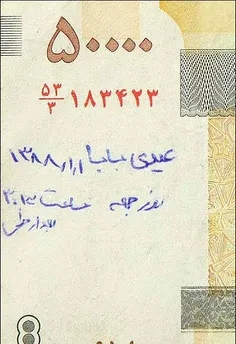 ۵۰۰۰۰
۵۳/۳ ۱۸۳۴۲۳
عیدی بابا ۱/۱/۱۳۸۸
روز جمعه ساعت ۳:۱۴